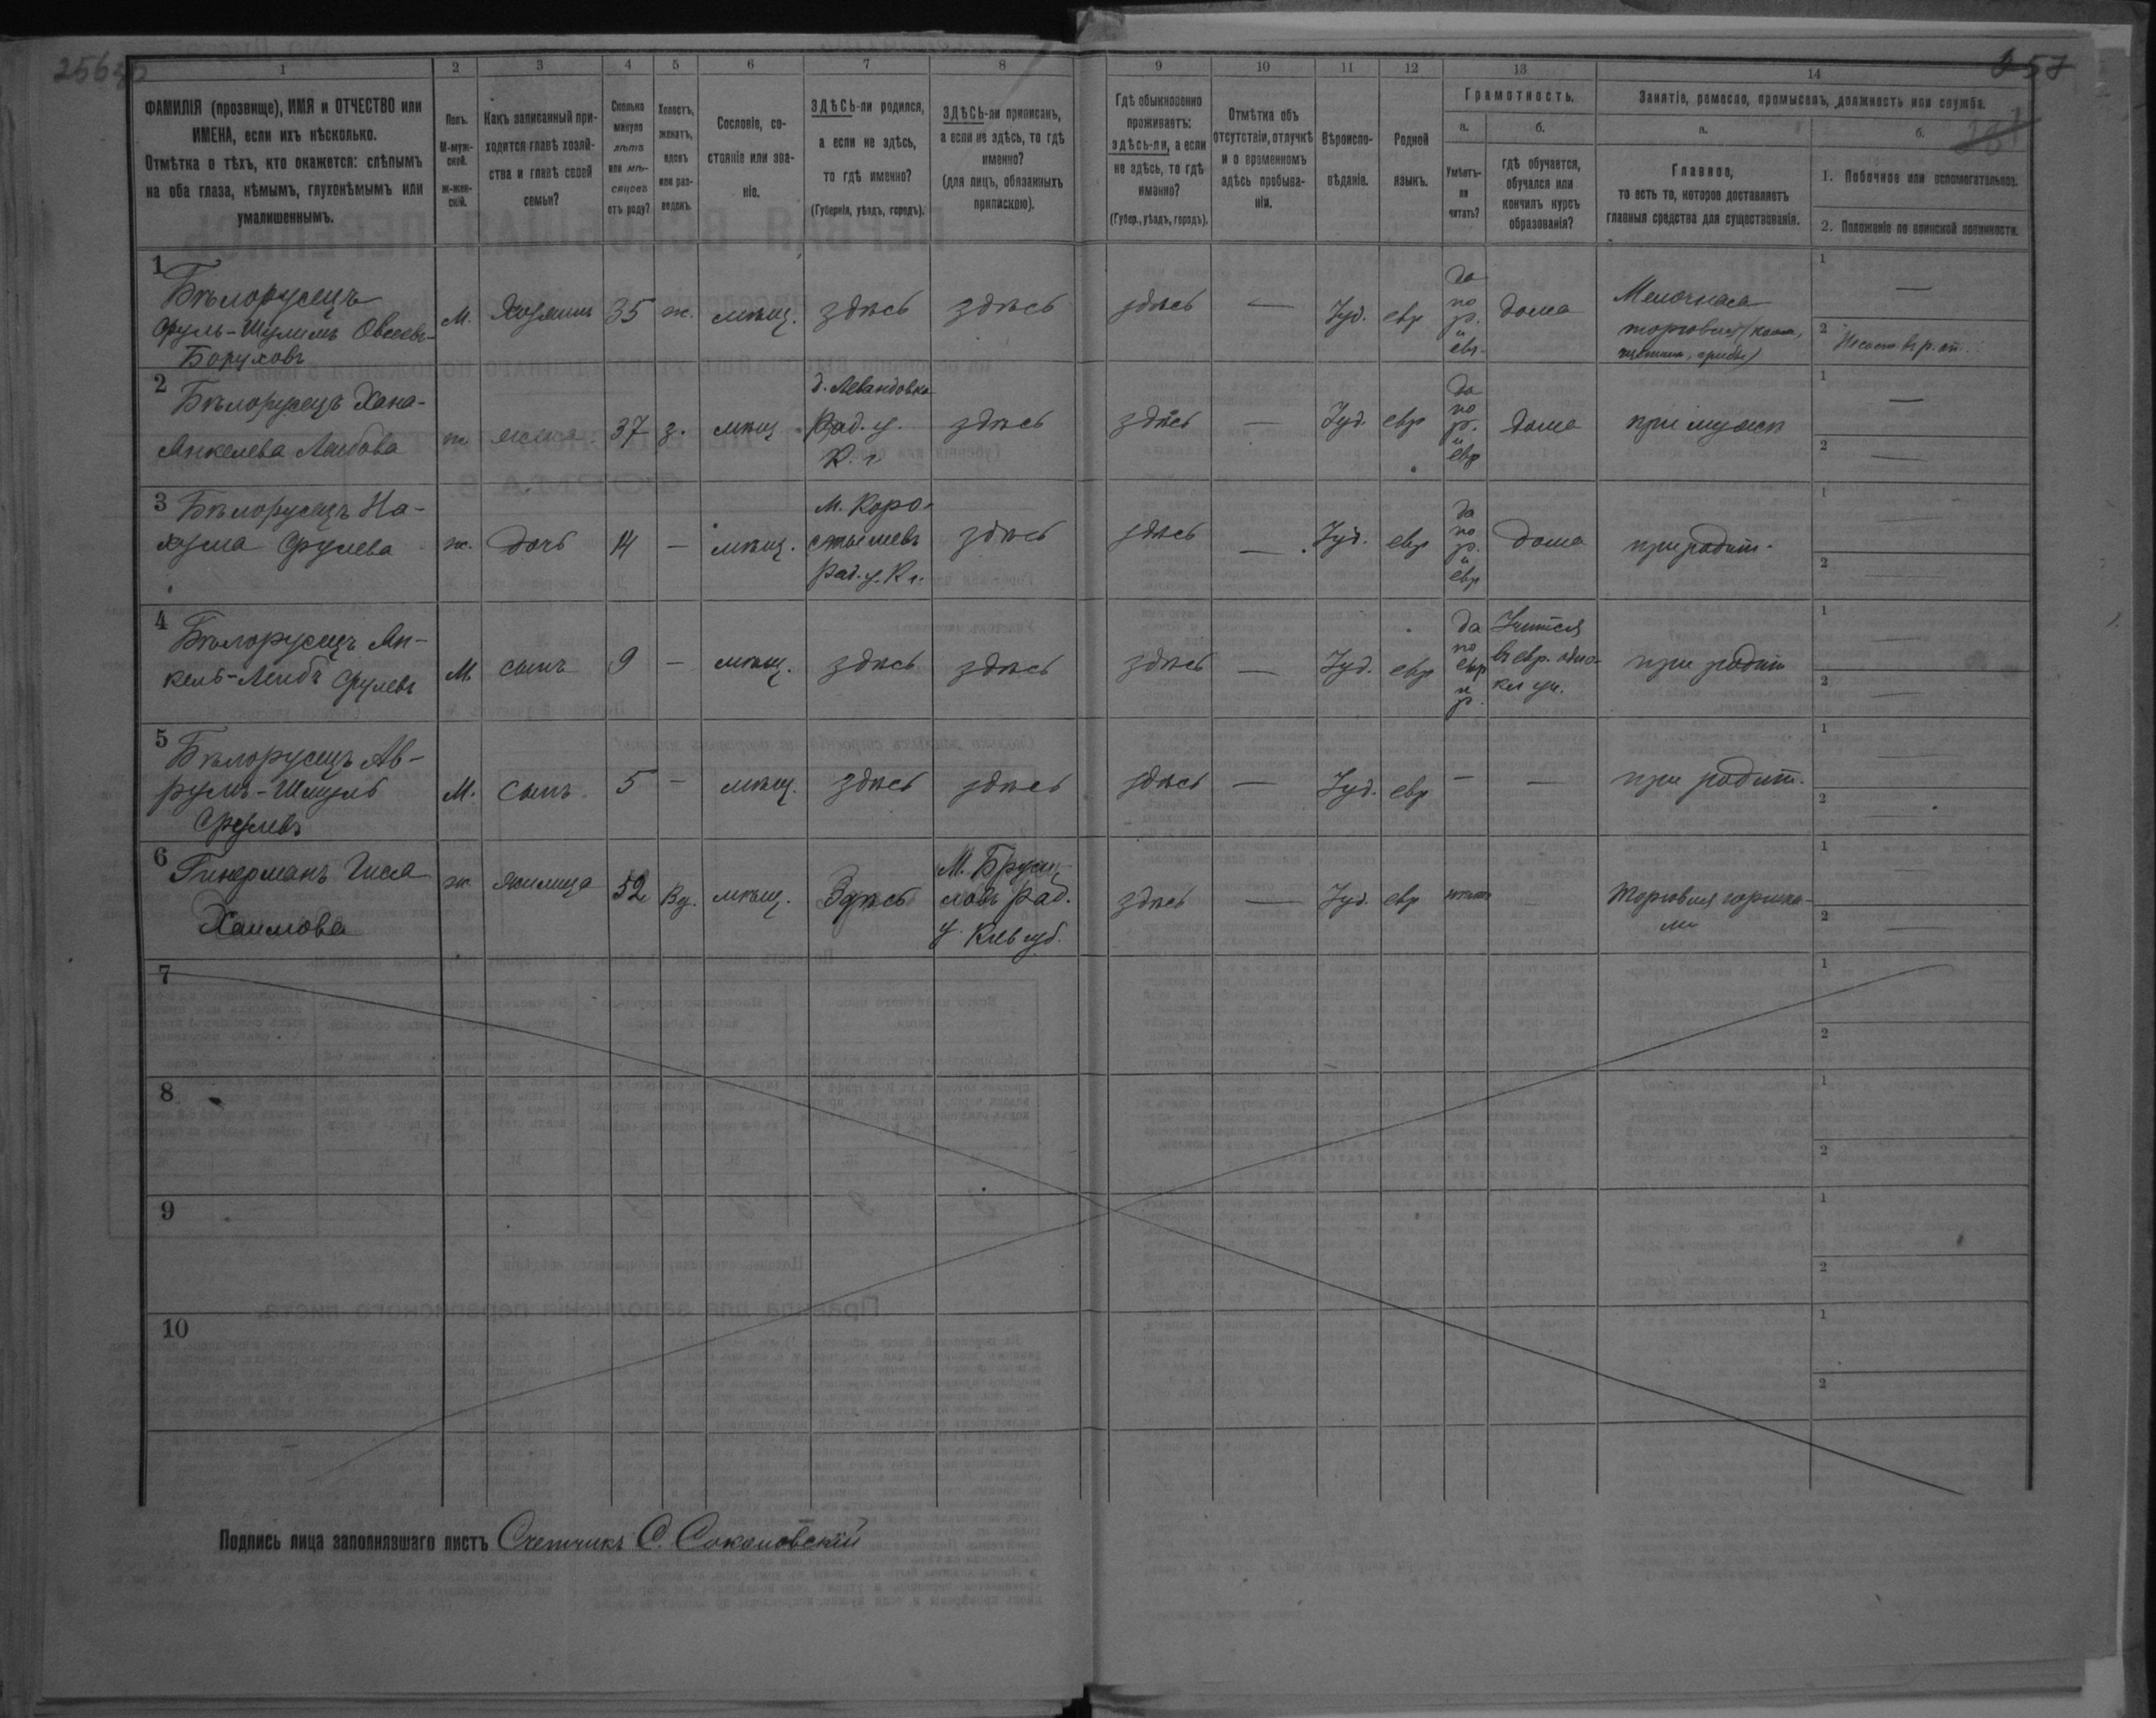 256
257
1 2 3 4 5 6 7 8 9 10 11 12 13 14
ФАМИЛІЯ (прозвище), ИМЯ и ОТЧЕСТВО или
ИМЕНА, если ихъ нѣсколько.
Отмѣтка о тѣхъ, кто окажется: слѣпымъ
на оба глаза, нѣмымъ, глухонѣмымъ или
умалишеннымъ.
Полъ.
М-муж-
ской.
ж-жен-
скій.
Какъ записанный при-
ходится главѣ хозяй-
ства и главѣ своей
семьи?
Сколько
минуло
лѣтъ
или мѣ-
сяцевъ
отъ роду?
Холостъ,
женатъ,
вдовъ
или раз-
веденъ.
Сословіе, со-
стояніе или зва-
ніе.
ЗДѢСЬ-ли родился,
а если не здѣсь,
то гдѣ именно?
(Губернія, уѣздъ, городъ).
ЗДѢСЬ-ли приписанъ,
а если не здѣсь, то гдѣ
именно?
(для лицъ, обязанныхъ
припискою).
Гдѣ обыкновенно
проживаетъ:
здѣсь-ли, а если
не здѣсь, то гдѣ
именно?
(Губер., уѣздъ, городъ).
Отмѣтка объ
отсутствіи, отлучкѣ
и о временномъ
здѣсь пребыва-
ніи.
Вѣроиспо-
вѣданіе.
Родной
языкъ.
Грамотность.
а.
Умѣетъ-
ли
читать?
б.
гдѣ обучается,
обучался или
кончилъ курсъ
образованія?
Занятіе, ремесло, промыселъ, должность или служба.
а.
Главное,
то есть то, которое доставляетъ
главныя средства для существованія.
б.
1. Побочное или вспомогательное.
2. Положеніе по воинской повинности.
1
Бѣлорусецъ
Срулъ-Шулимъ Овсеевъ-
Боруховъ
М. Хозяинъ 35 ж. мѣщ. здѣсь здѣсь здѣсь — Іуд. евр
да
по
р.
и
евр.
дома
Мелочная
торговля (кожа,
щетина, грибы)
1 —
2
2
Бѣлорусецъ Хана-
Анкелева Лейбова
ж. жена 37 з. мѣщ.
д. Левандовка
Рад. у.
К. г.
здѣсь здѣсь — Іуд. евр
да
по
р.
и
евр
дома при мужѣ
1 —
2 —
3
Бѣлорусецъ На-
хузма Срулева
ж. дочь 14 — мѣщ.
М. Коро-
стышевъ
Рад. у. К г.
здѣсь здѣсь — Іуд. евр
да
по
р.
и
евр
дома при родит.
1 —
2 —
4
Бѣлорусецъ Ан-
кель-Лейбъ Срулевъ
М. сынъ 9 — мѣщ. здѣсь здѣсь здѣсь — Іуд. евр
да
по
евр
и
р.
Учится
въ евр. одно-
кл уч.
при родит
1 —
2 —
5
Бѣлорусецъ Ав-
румъ-Шмуль
Срулевъ
М. сынъ 5 — мѣщ. здѣсь здѣсь здѣсь — Іуд. евр — — при родит.
1 —
2 —
6
Гинерманъ Гися
Хаимова
ж жилица 52 Вд. мѣщ. Здѣсь
М. Бруси-
ловъ Рад.
у. Кіев губ.
здѣсь — Іуд. евр —
Торговля горшка-
ми
1
2 —
7
1
2
8
1
2
9
1
2
10
1
2
Подпись лица заполнявшаго листъ Счетчикъ С. Соколовскій